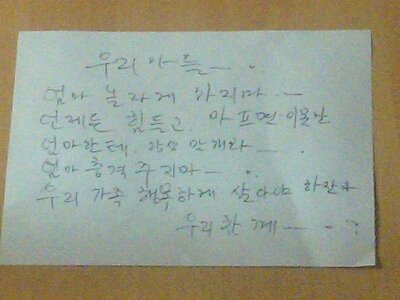 우리아들--.
엄마 놀라게 하지마--
언제든 힘들고, 아프면 이못난
엄마한테. 항상 말해라--.
엄마 충격 주지마--.
우리 가족 행복하게 살아야 하잖아
우리 함께---?